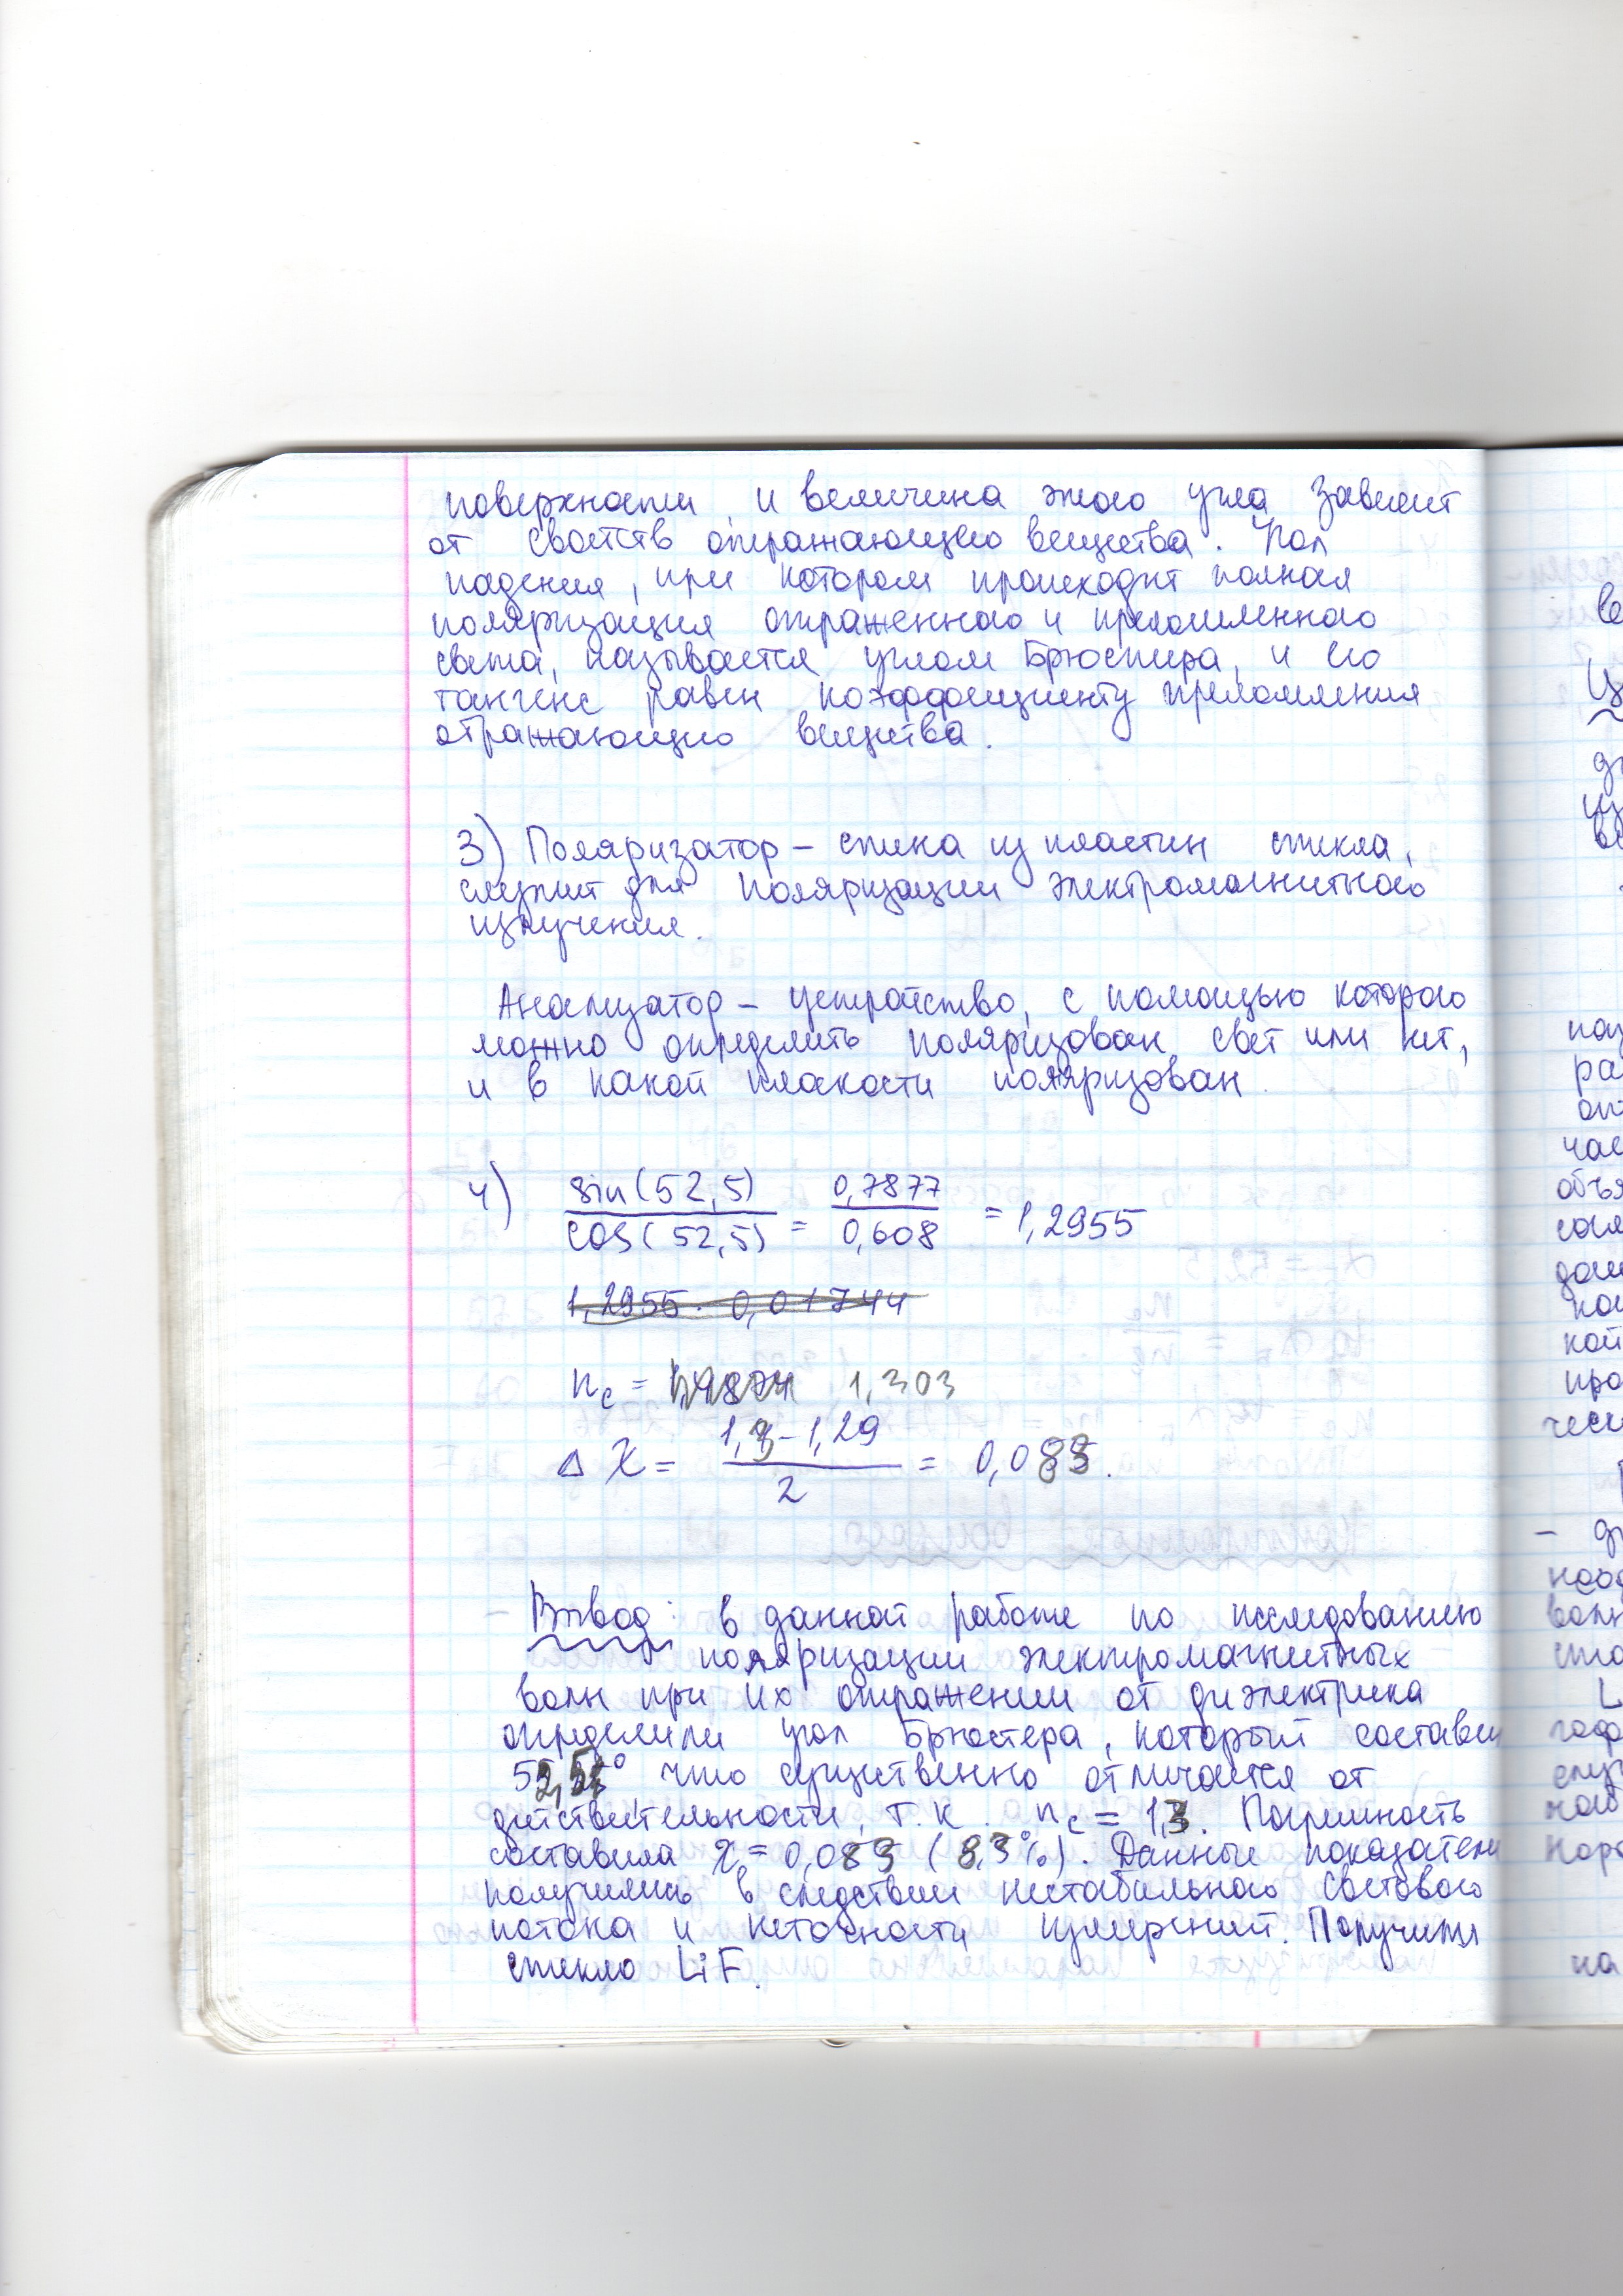 поверхности, и величина этого угла зависит
от свойств отражающего вещества. Угол
падения, при котором происходит полная
поляризация отраженного и преломленного
света, называется углом Брюстера, и его
тангенс равен коэффициенту преломления
отражающего вещества.
3) Поляризатор – стопка из пластин стекла,
служит для поляризации электромагнитного
излучения.
Анализатор – устройство, с помощью которого
можно определить поляризован свет или нет,
и в какой плоскости поляризован.
4) sin(52,5) / cos(52,5) = 0,7877 / 0,608 = 1,2955
1,2955 · 0,01744
nc = 1,303
Δ X = 1,3 – 1,29 / 2 = 0,083.
Вывод: в данной работе по исследованию
поляризации электромагнитных
волн при их отражении от диэлектрика
определили угол Брюстера, который составил
52,5° что существенно отличается от
действительности, т.к. nc = 1,3. Погрешность
составила X = 0,083 (8,3%). Данные показатели
получились в следствии нестабильного светового
потока и неточности измерений. Получили
стекло LiF.
ве
Ц
из
ве
ра
час
объя
дом
кой
про
ческ
–
вол
L
на